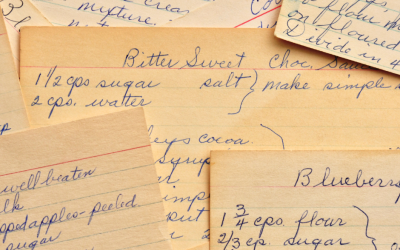 mixture.
cream
flour mi
on floured
Divide in 4
Bitter Sweet Choc. Sauc
1 1/2 cps sugar salt } make simple s
2 cps. watter
eys cocoa.
syrup
imp
put
well beaten
lk
pped apples-peeled
sugar
Blueberry
1 3/4 cps. flour
2/3 cp. sugar